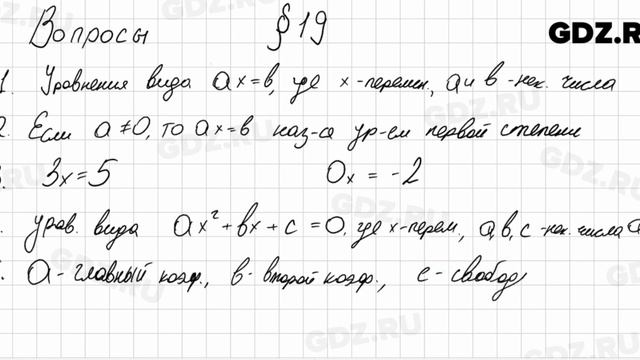 Вопросы § 19
GDZ.RU
1. Уравнения вида ax=b, где x-перемен., a и b -нек. числа
2. Если a≠0, то ax=b наз-ся ур-ем первой степени
3x=5 0x = -2
урав. вида ax²+bx+c=0, где x-перем, a,b,c -нек. числа a
a-главный коэф., b-второй коэф., c-свобод